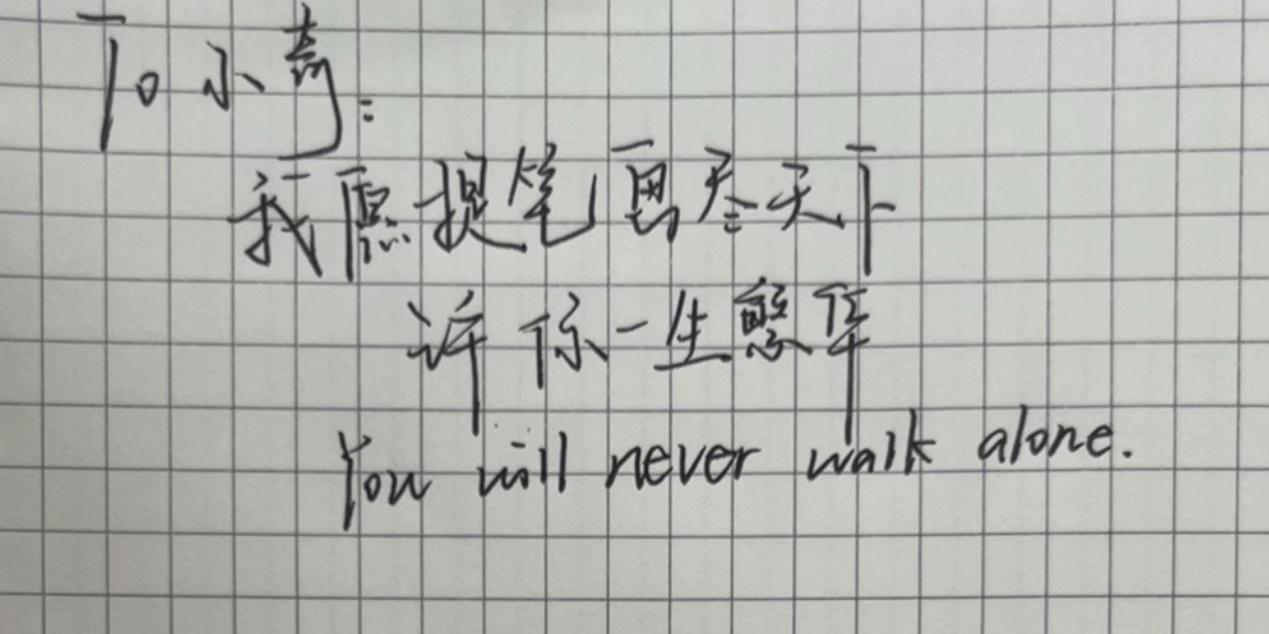 To 小青:
我愿提笔画尽天下
许你一生繁华
You will never walk alone.